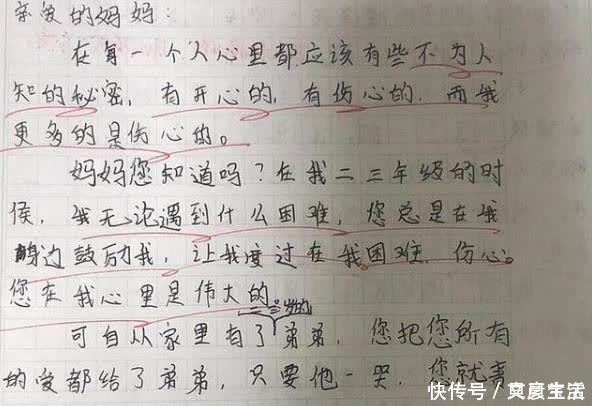 亲爱的妈妈：
在每一个人心里都应该有些不为人
知的秘密，有开心的，有伤心的，而我
更多的是伤心的。
妈妈您知道吗？在我二三年级的时
侯，我无论遇到什么困难，您总是在我
身边鼓励我，让我度过在我困难、伤心。
您在我心里是伟大的。
二三岁的
可自从家里有了弟弟，您把您所有
的爱都给了弟弟，只要他一哭，您就责
快传号／文彦生活